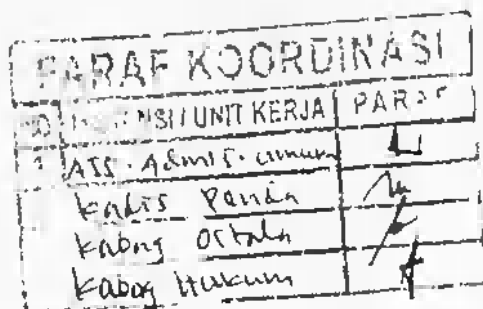 PARAF KOORDINASI
NO INSTANSI/UNIT KERJA PARAF
1 ASS. Admi5. umum
Kadis Panda
Kabag Ortala
Kabag Hukum